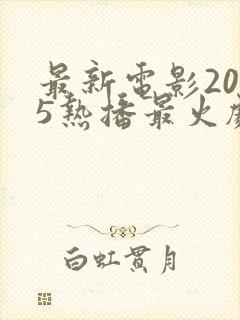 最新電影20
5熱播最火
白虹貫月